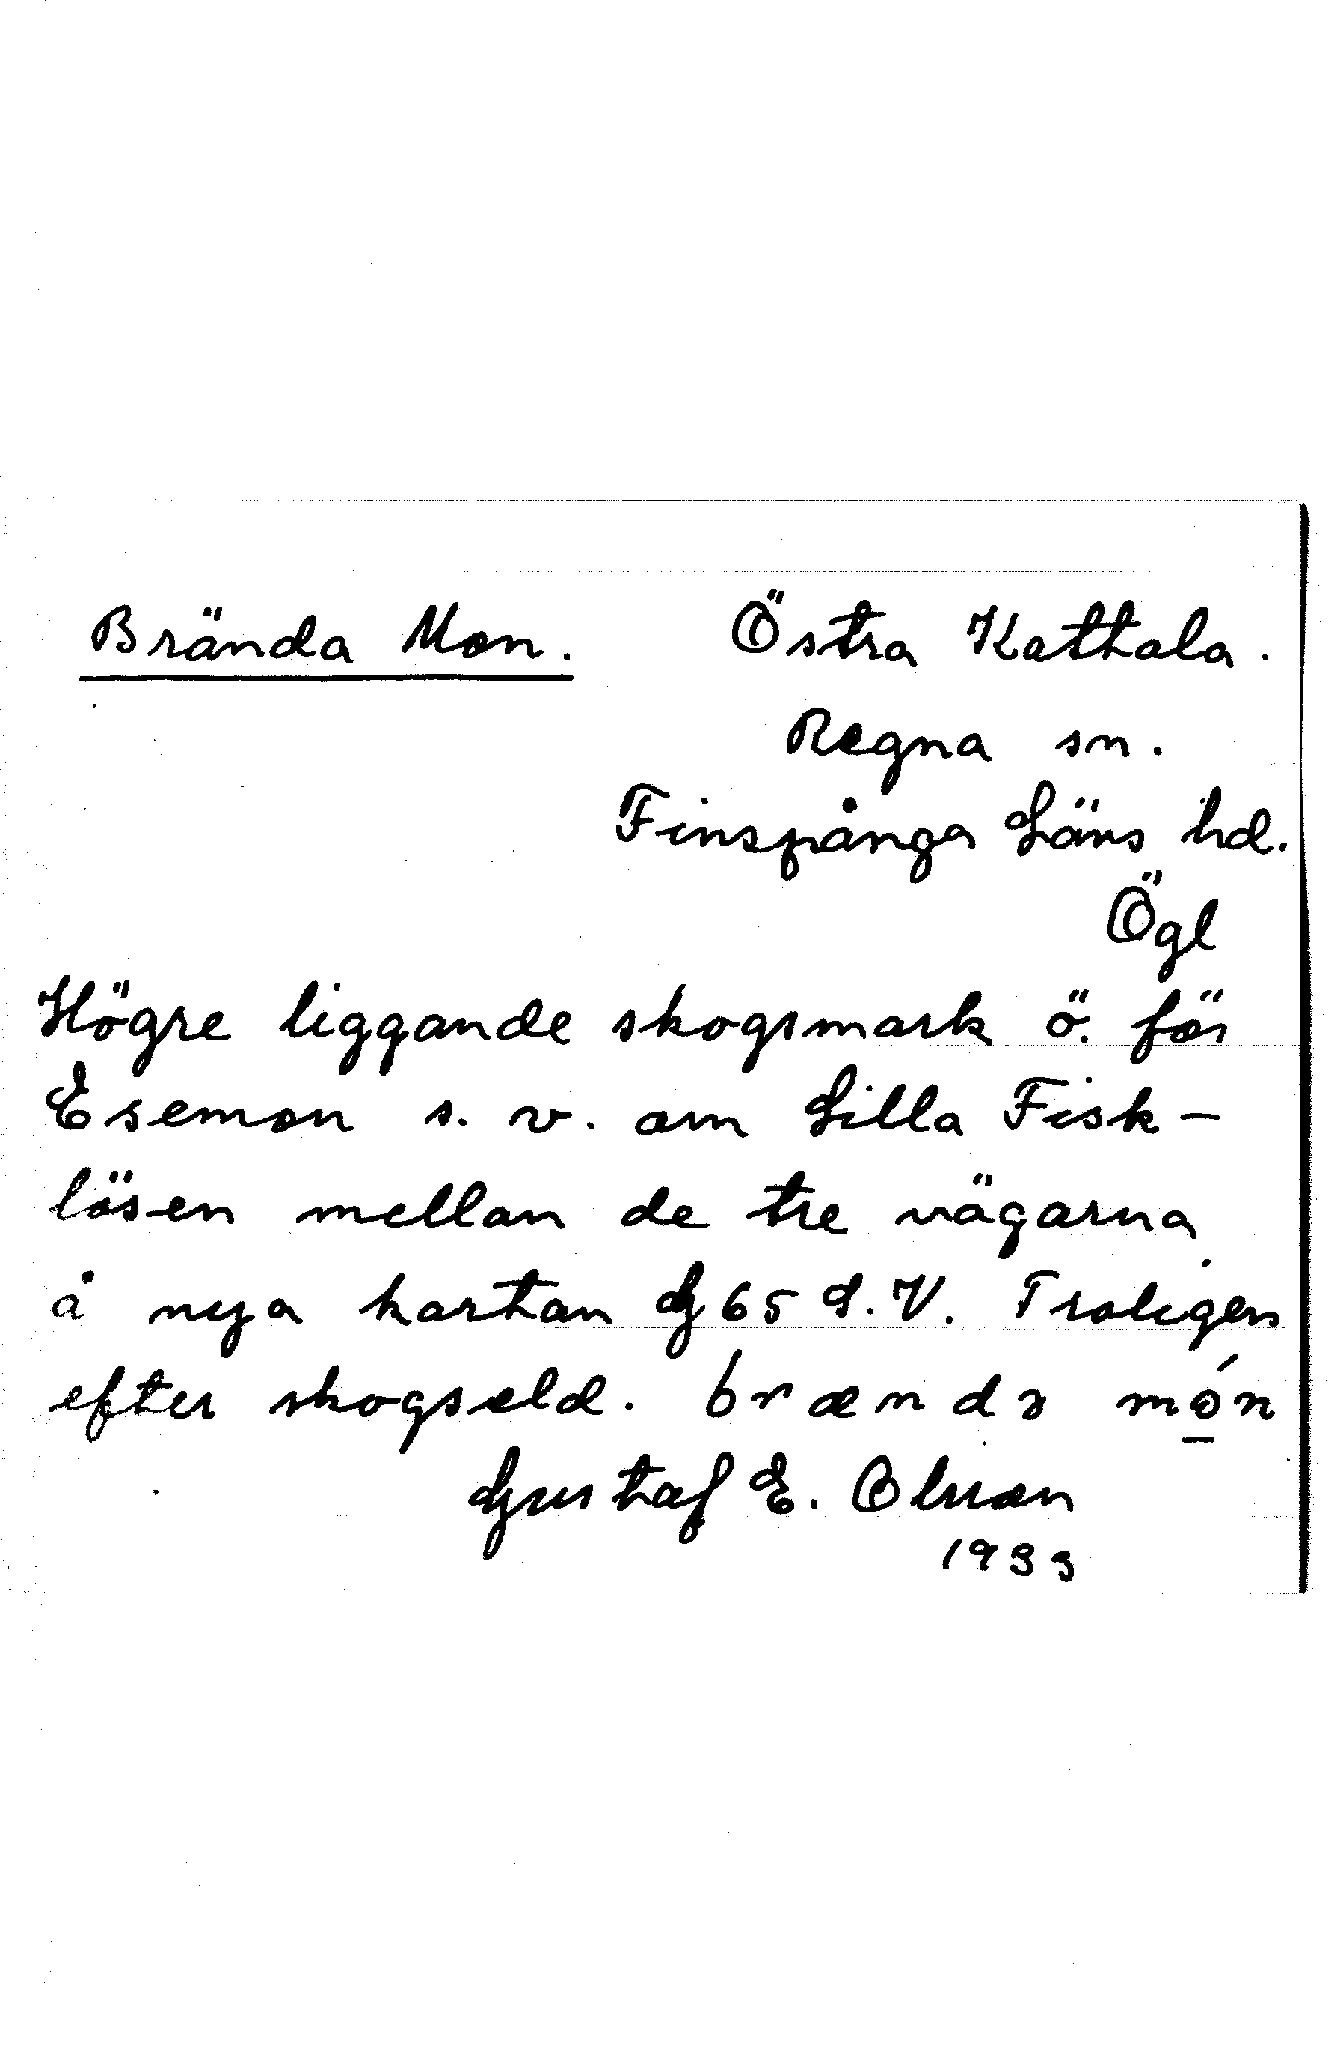 Brända Mon. Östra Kattala.
Regna sn.
Finspånga Läns hd.
Ögl
Högre liggande skogsmark ö. för
Esemon s. v. om Lilla Fisk-
lösen mellan de tre vägarna
å nya kartan G65 S.V. Troligen
efter skogseld. brændɜ món
Gustaf E. Olsson
1933